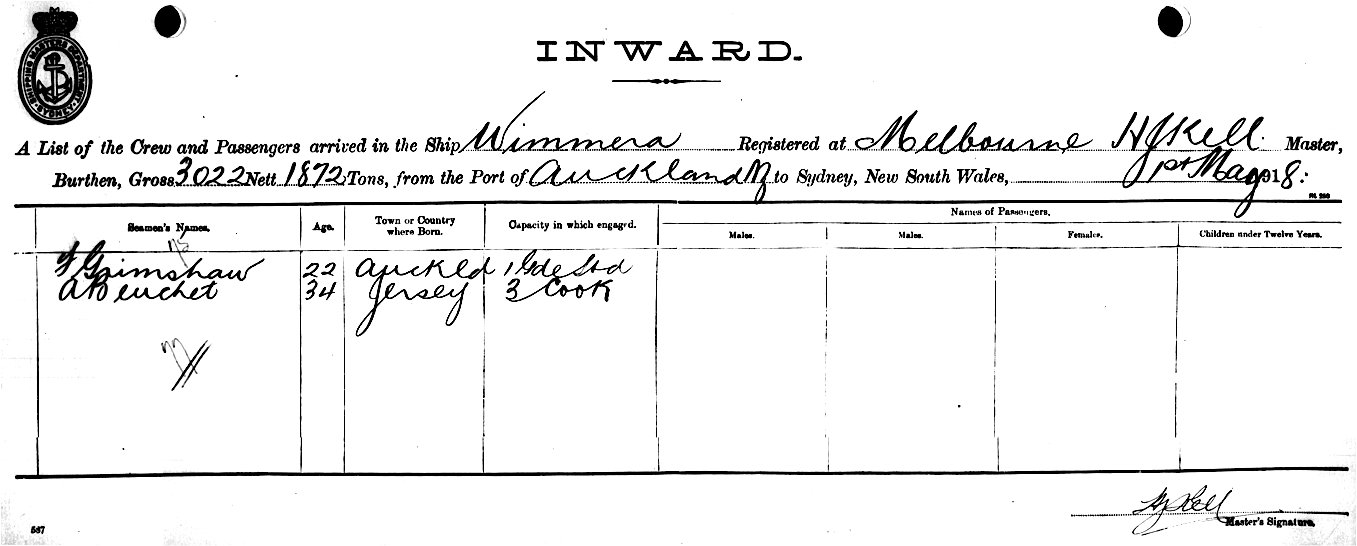 SHIPPING MASTERS DEPARTMENT SYDNEY
INWARD.
A List of the Crew and Passengers arrived in the Ship Wimmera Registered at Melbourne H J Kell Master,
Burthen, Gross 3022 Nett 1872 Tons, from the Port of Auckland NZ to Sydney, New South Wales, 1st May 1918:
Seamen's Names. Age. Town or Country where Born. Capacity in which engaged. Names of Passengers.
Males. Males. Females. Children under Twelve Years.
Grimshaw 22 Auckld 1 Gde Std
34 Jersey 3 Cook
H J Kell
Master's Signature.
587